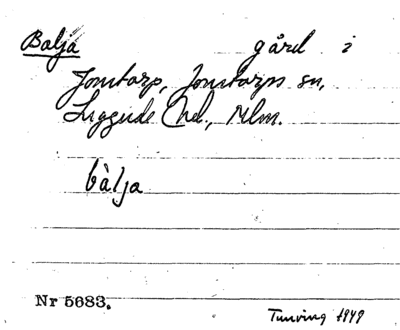 Balja gård i
Jonstorp, Jonstorps sn,
Luggude hd., Mlm.
bàlja
Nr 5683.
Tunving 1949